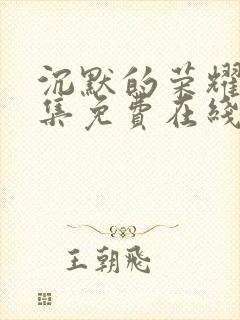 沉默的荣耀
集免费在线
王朝飛